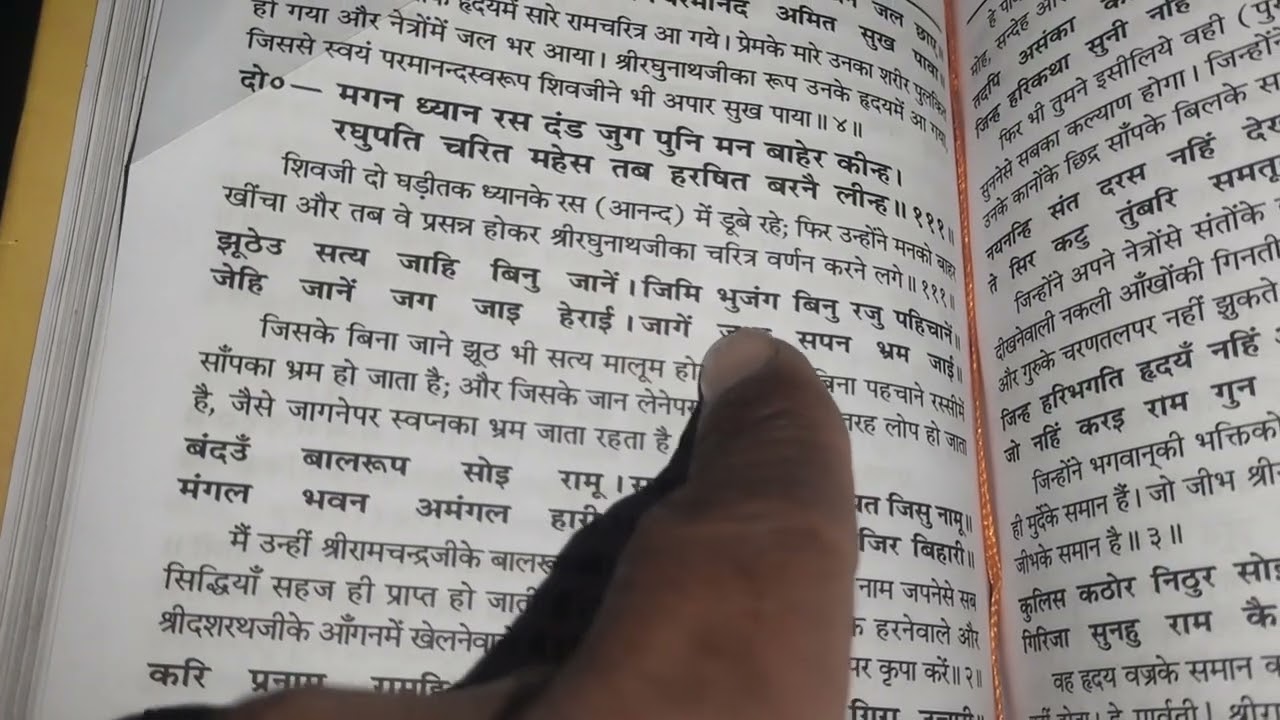 परमानंद अमित सुख पावा॥
हृदयमें सारे रामचरित्र आ गये। प्रेमके मारे उनका शरीर पुलकित
हो गया और नेत्रोंमें जल भर आया। श्रीरघुनाथजीका रूप उनके हृदयमें आ गया,
जिससे स्वयं परमानन्दस्वरूप शिवजीने भी अपार सुख पाया॥ ४॥
दो०— मगन ध्यान रस दंड जुग पुनि मन बाहेर कीन्ह।
रघुपति चरित महेस तब हरषित बरनै लीन्ह॥ १११॥
शिवजी दो घड़ीतक ध्यानके रस (आनन्द) में डूबे रहे; फिर उन्होंने मनको बाहर
खींचा और तब वे प्रसन्न होकर श्रीरघुनाथजीका चरित्र वर्णन करने लगे॥ १११॥
झूठेउ सत्य जाहि बिनु जानें। जिमि भुजंग बिनु रजु पहिचानें॥
जेहि जानें जग जाइ हेराई। जागें सपन भ्रम जाई॥
जिसके बिना जाने झूठ भी सत्य मालूम हो बिना पहचाने रस्सीमें
साँपका भ्रम हो जाता है; और जिसके जान लेनेपर तरह लोप हो जाता
है, जैसे जागनेपर स्वप्नका भ्रम जाता रहता है
बंदउँ बालरूप सोइ रामू। जिसु नामू॥
मंगल भवन अमंगल हारी बिहारी॥
मैं उन्हीं श्रीरामचन्द्रजीके नाम जपनेसे सब
सिद्धियाँ सहज ही प्राप्त हो हरनेवाले और
श्रीदशरथजीके आँगनमें कृपा करें॥ २॥
करि प्रनाम
जल
हे
मोह, सन्देह
तदपि असंका
जिन्ह हरिकथा सुनी नहिं
फिर भी तुमने इसीलिये वही
सुननेसे सबका कल्याण होगा। जिन्होंने
उनके कानोंके छिद्र साँपके बिलके
नयनन्हि संत दरस नहिं
ते सिर कटु तुंबरि समतू
जिन्होंने अपने नेत्रोंसे संतोंके
दीखनेवाली नकली आँखोंकी गिनती
और गुरुके चरणतलपर नहीं झुकते
जिन्ह हरिभगति हृदयँ नहिं
जो नहिं करइ राम गुन
जिन्होंने भगवान्‌की भक्तिको
ही मुर्देके समान हैं। जो जीभ
जीभके समान है॥ ३॥
कुलिस कठोर निठुर सोइ
गिरिजा सुनहु राम कै
वह हृदय वज्रके समान